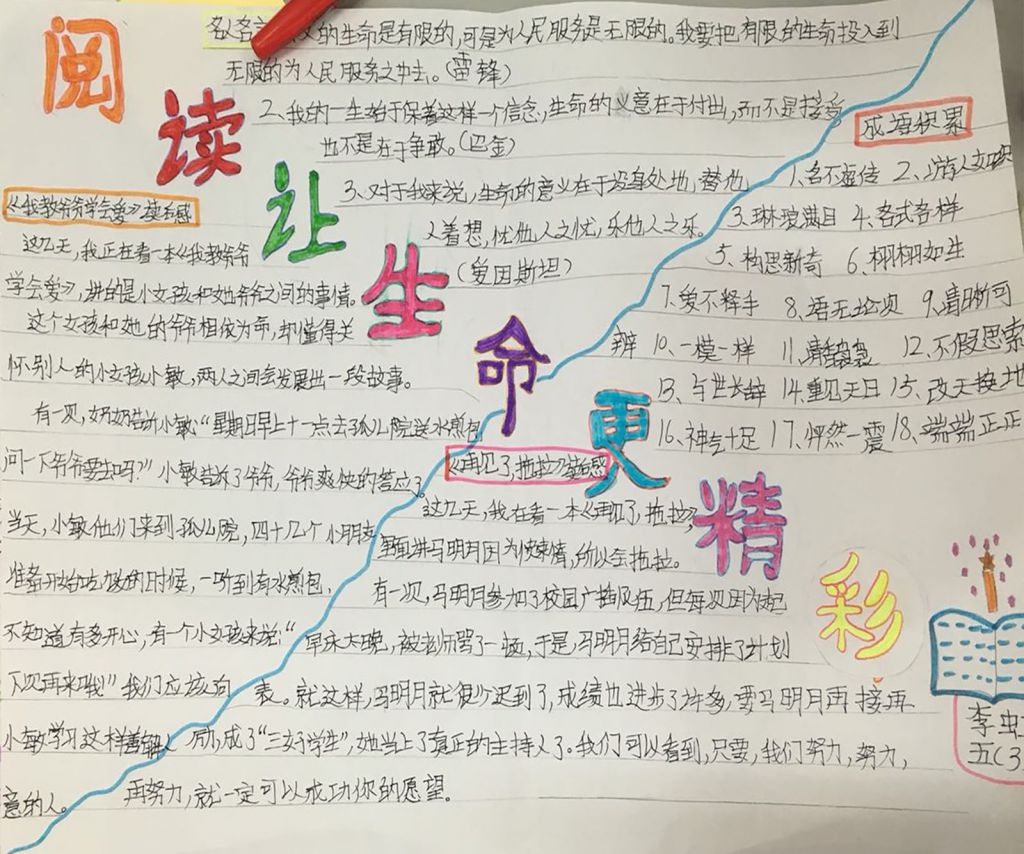 阅读让生命更精彩
的生命是有限的,可是为人民服务是无限的。我要把有限的生命投入到
无限的为人民服务之中去。(雷锋)
2、我的一生始于保着这样一个信念,生命的义意在于付出,而不是接
也不是在于争取。(巴金)
3、对于我来说,生命的意义在于设身处地,替他
人着想,忧他人之忧,乐他人之乐。
(爱因斯坦)
成语积累
1、名不虚传 2、游人如织
3、琳琅满目 4、各式各样
5、构思新奇 6、栩栩如生
7、爱不释手 8、语无论次 9、清晰可
辨 10、一模一样 11、 12、不假思索
13、与世长辞 14、重见天日 15、改天换地
16、神气十足 17、怦然一震 18、端端正正
《我教爷爷学会爱》读后感
这几天,我正在看一本《我教爷爷
学会爱》,讲的是小女孩和她爷爷之间的事情。
这个女孩和她的爷爷相依为命,却懂得关
怀别人的小女孩小敏,两人之间会发展出一段故事。
有一次,奶奶告诉小敏:“星期日早上十一点去孤儿院送水煎包
问一下爷爷要去吗?”小敏告诉了爷爷,爷爷爽快的答应了
当天,小敏他们来到孤儿院,四十几个小朋友
准备开始吃饭的时候,一听到有水煎包,
不知道有多开心,有一个小女孩来说:“
下次再来哦!”我们应该向
小敏学习这样善解人
意的人。
《再见了,拖拉》读后感
这几天,我在看一本《再见了,拖拉》
里面讲马明月因为快事情,所以会拖拉。
有一次,马明月参加了校园广播队伍,但每次因为起
早床太晚,被老师骂了一顿,于是,马明月给自己安排了计划
表。就这样,马明月就很少迟到了,成绩也进步了许多,马明月再接再
励,成了“三好学生”,她当上了真正的主持人了。我们可以看到,只要,我们努力,努力,
再努力,就一定可以成功你的愿望。
李
五(3